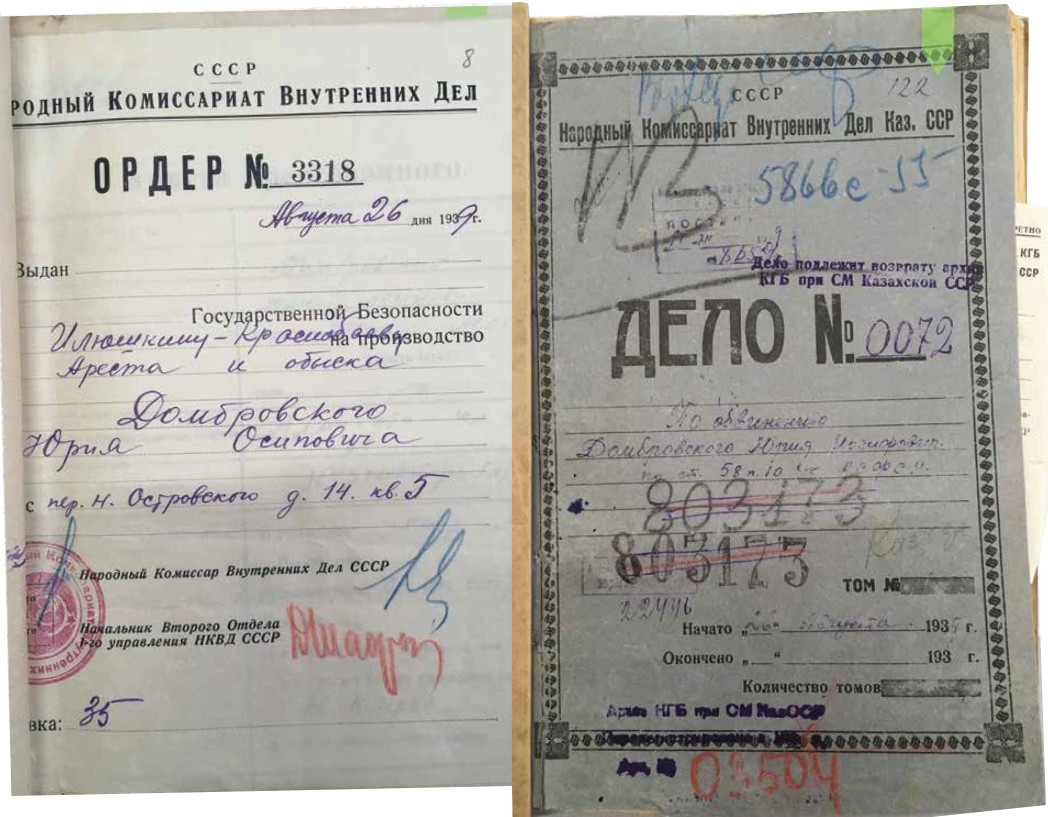 8
СССР
РОДНЫЙ КОМИССАРИАТ ВНУТРЕННИХ ДЕЛ
ОРДЕР № 3318
Августа 26 дня 1939г.
Выдан
Государственной Безопасности
на производство
Ареста и обыска
Домбровского
Юрия Осиповича
с пер. Н. Островского д. 14. кв. 5
Народный Комиссар Внутренних Дел СССР
Начальник Второго Отдела
1-го управления НКВД СССР
вка: 35
СССР
122
Народный Комиссариат Внутренних Дел Каз. ССР
5866с-55
Дело подлежит возврату архив
КГБ при СМ Казахской ССР
ДЕЛО №. 0072
По обвинению
Домбровского Юрия
по ст. 58 п. 10
803173
803173
ТОМ №
22446
Начато „26“ августа 193 г.
Окончено „ “ 193 г.
Количество томов
Архив КГБ при СМ КазССР
Арх. №
03504
РЕТНО
КГБ
ССР